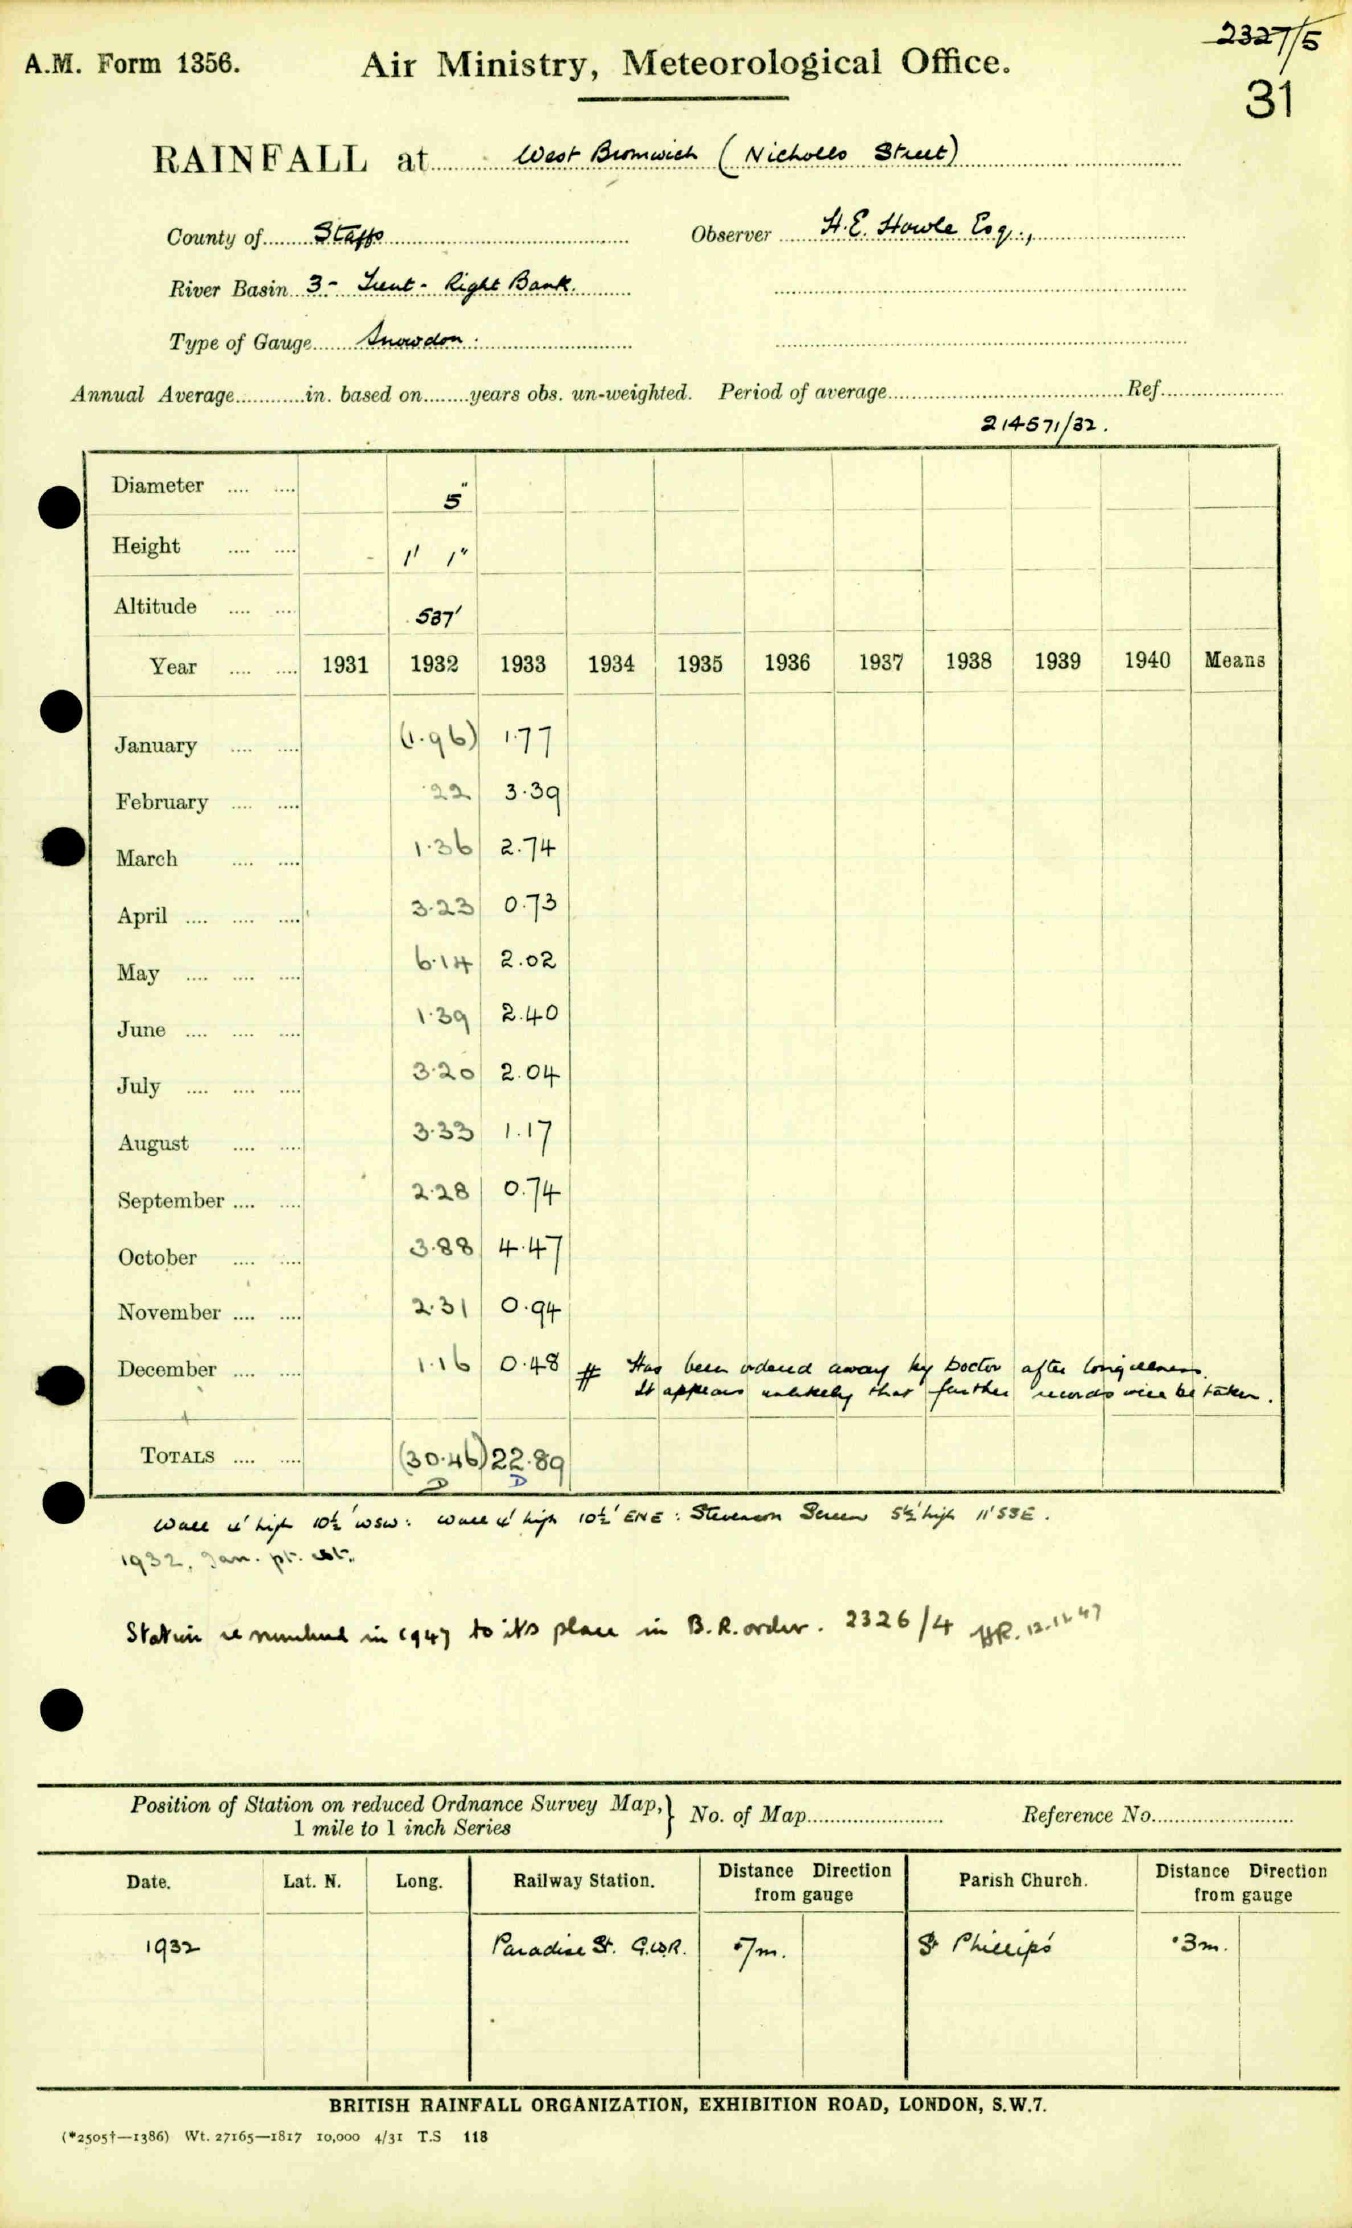 2327/5
A.M. Form 1356. Air Ministry, Meteorological Office.
31
RAINFALL at West Bromwich (Nicholls Street)
County of Staffs Observer H.E. Howle Esq.,
River Basin 3- Trent - Right Bank.
Type of Gauge Snowdon.
Annual Average in. based on years obs. un-weighted. Period of average Ref.
214571/32.
Diameter 5"
Height 1' 1"
Altitude 537'
Year 1931 1932 1933 1934 1935 1936 1937 1938 1939 1940 Means
January (1.96) 1.77
February .22 3.39
March 1.36 2.74
April 3.23 0.73
May 6.14 2.02
June 1.39 2.40
July 3.20 2.04
August 3.33 1.17
September 2.28 0.74
October 3.88 4.47
November 2.31 0.94
December 1.16 0.48 # Has been ordered away by Doctor after long illness.
It appears unlikely that further records will be taken.
TOTALS (30.46) 22.89
D D
Wall 4' high 10½' WSW: Wall 4' high 10½' ENE: Stevenson Screen 5½' high 11' SSE.
1932, Jan. pt. est.
Station renumbered in 1947 to its place in B.R. order. 2326/4 HR. 12.12.47
Position of Station on reduced Ordnance Survey Map, } No. of Map Reference No.
1 mile to 1 inch Series
Date. Lat. N. Long. Railway Station. Distance Direction from gauge Parish Church. Distance Direction from gauge
1932 Paradise St. G.W.R. .7m. St Phillip's .3m.
BRITISH RAINFALL ORGANIZATION, EXHIBITION ROAD, LONDON, S.W.7.
(*2505†—1386) Wt. 27165—1817 10,000 4/31 T.S 118